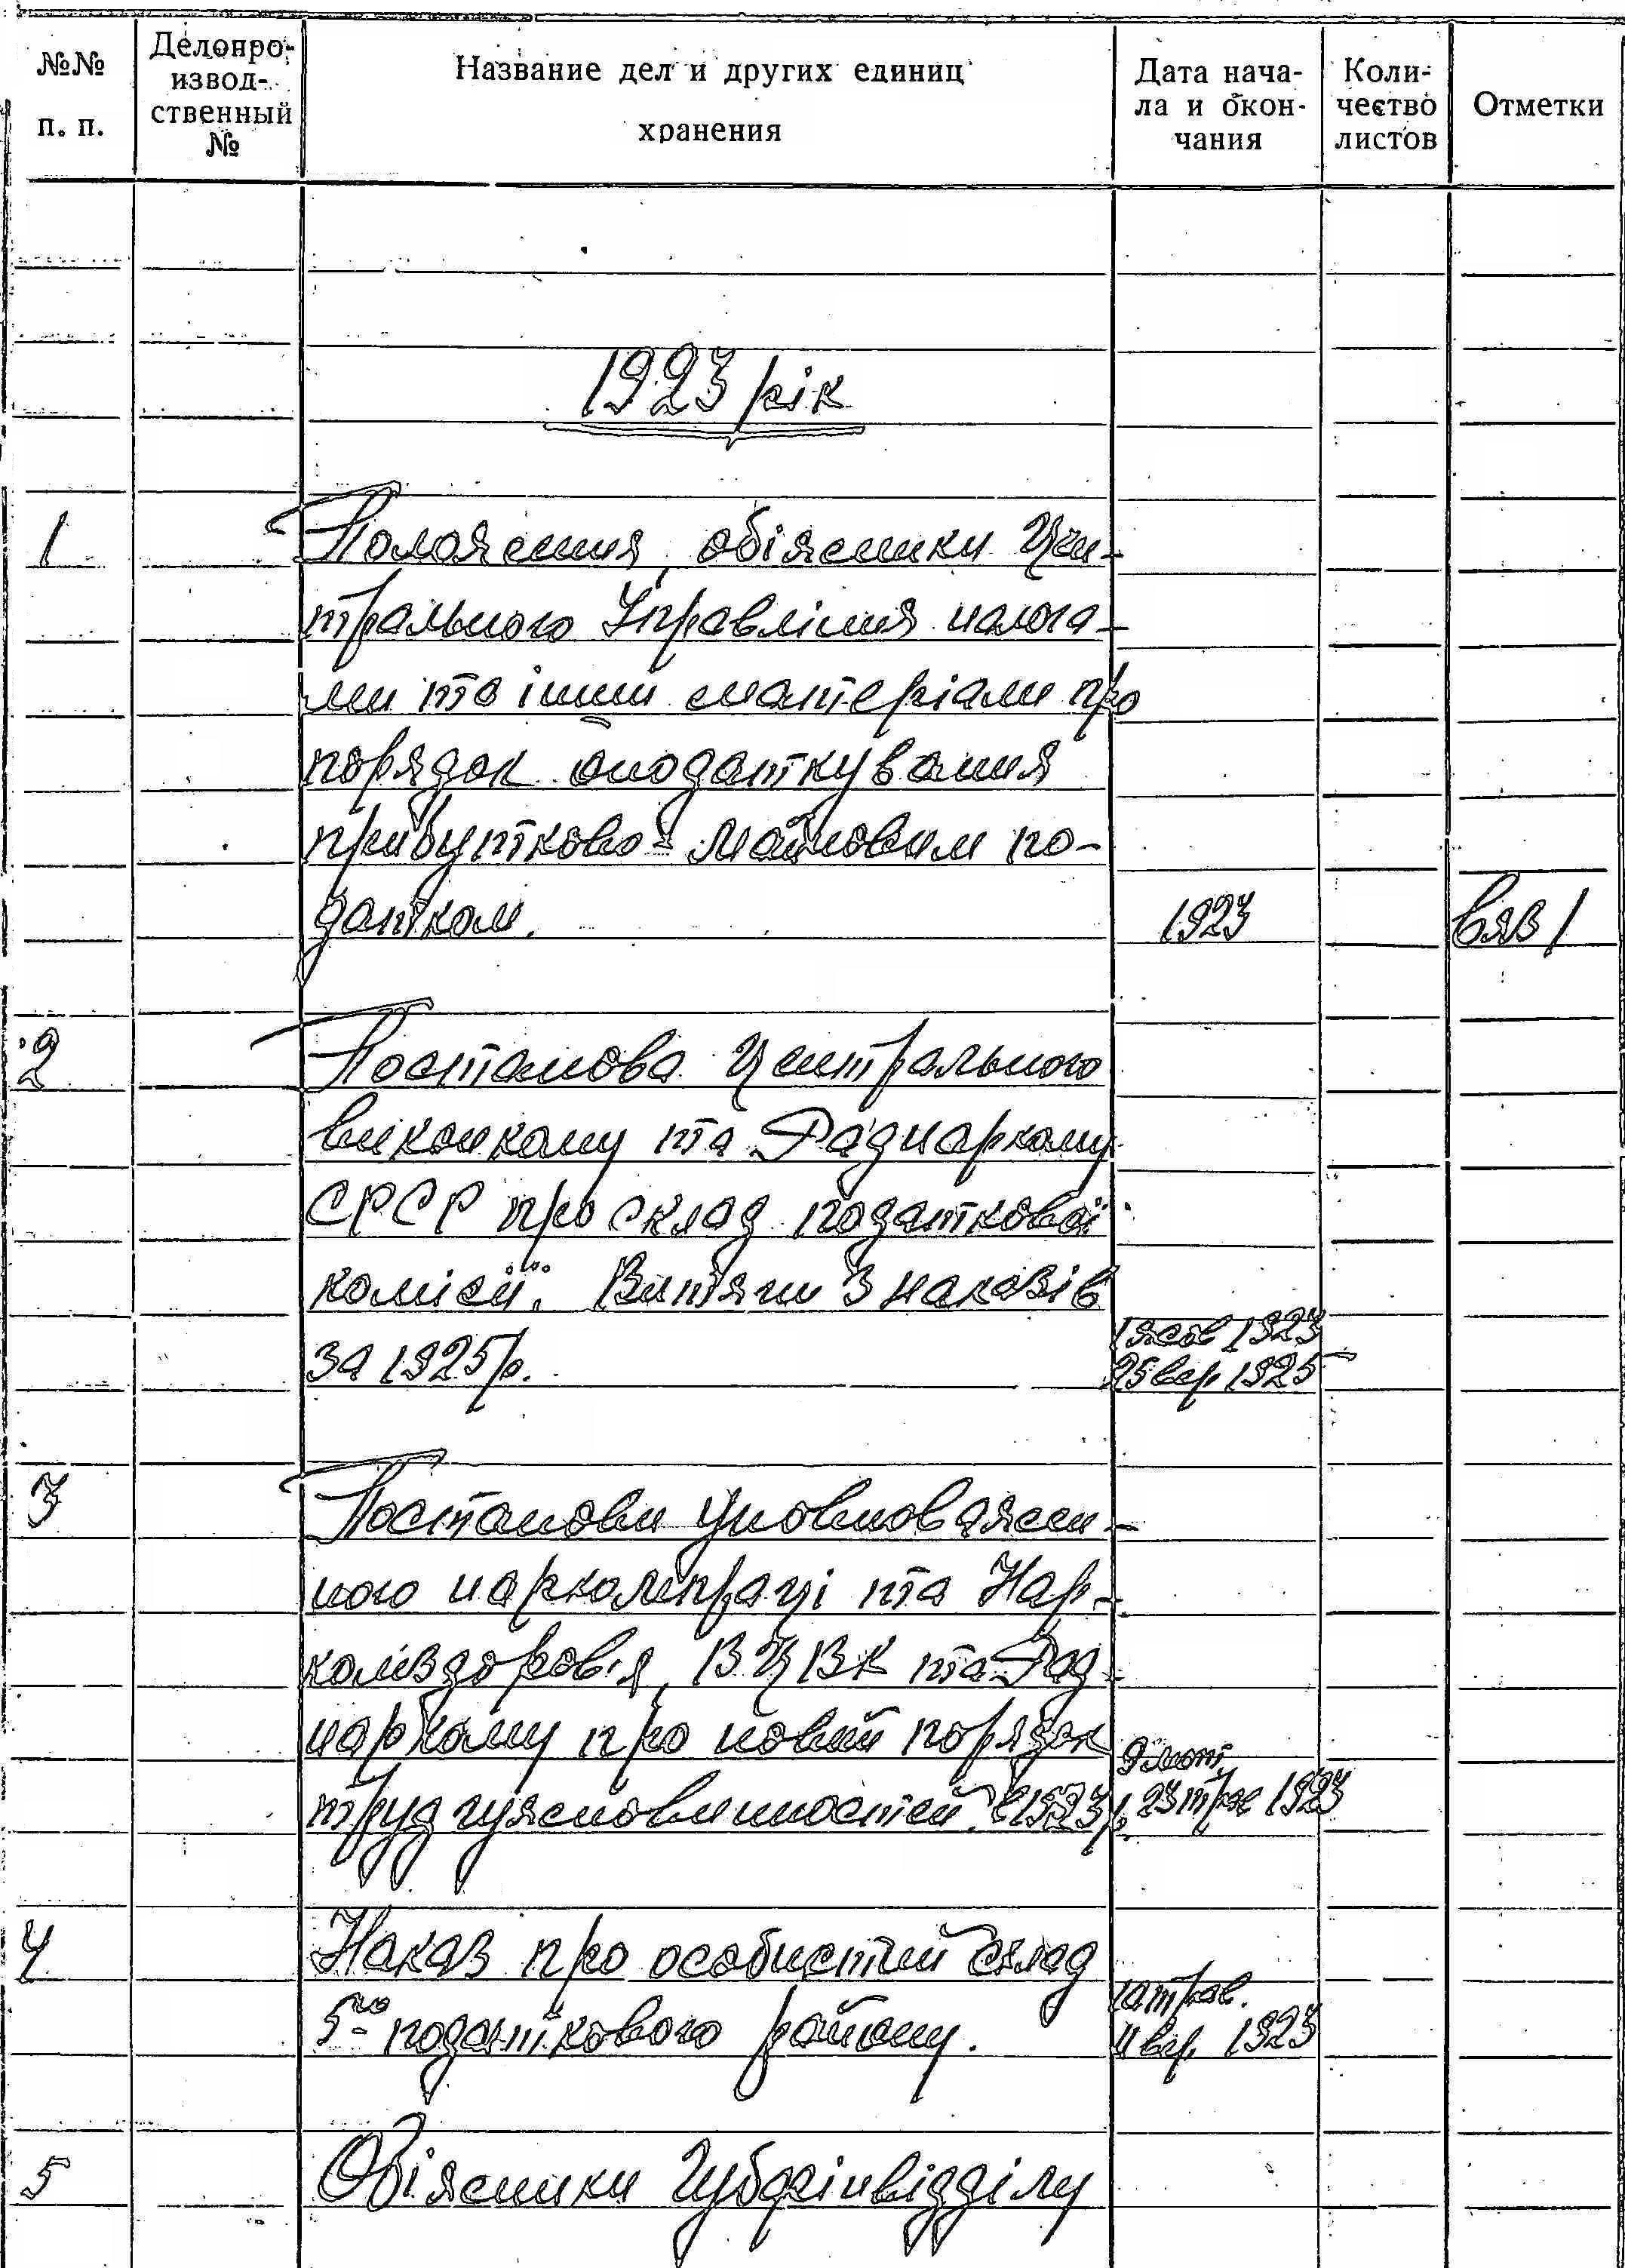 №№ п. п.
Делопро-
извод-
ственный
№
Название дел и других единиц
хранения
Дата нача-
ла и окон-
чания
Коли-
чество
листов
Отметки
1923 рік
1
Положення, обіжники Цен-
трального Управління налога-
ми та інши матеріали про
порядок оподаткування
прибутково-майновим по-
датком.
1923
2
Постанова Центрального
виконкому та Раднаркому
СРСР про склад податкової
комісії. Витяги з наказів
за 1925 р.
1923
25 вер 1925
3
Постанови Уповноважен-
ного наркомпраці та Нар-
комздоров'я, ВЦВК та Рад-
наркому про новий порядок
труджужповинностей в 1923 р.
9 лют.
23 трав 1923
4
Наказ про особистий склад
5-го податкового району.
трав.
11 вер. 1923
5
Обіжники Губфінвідділу